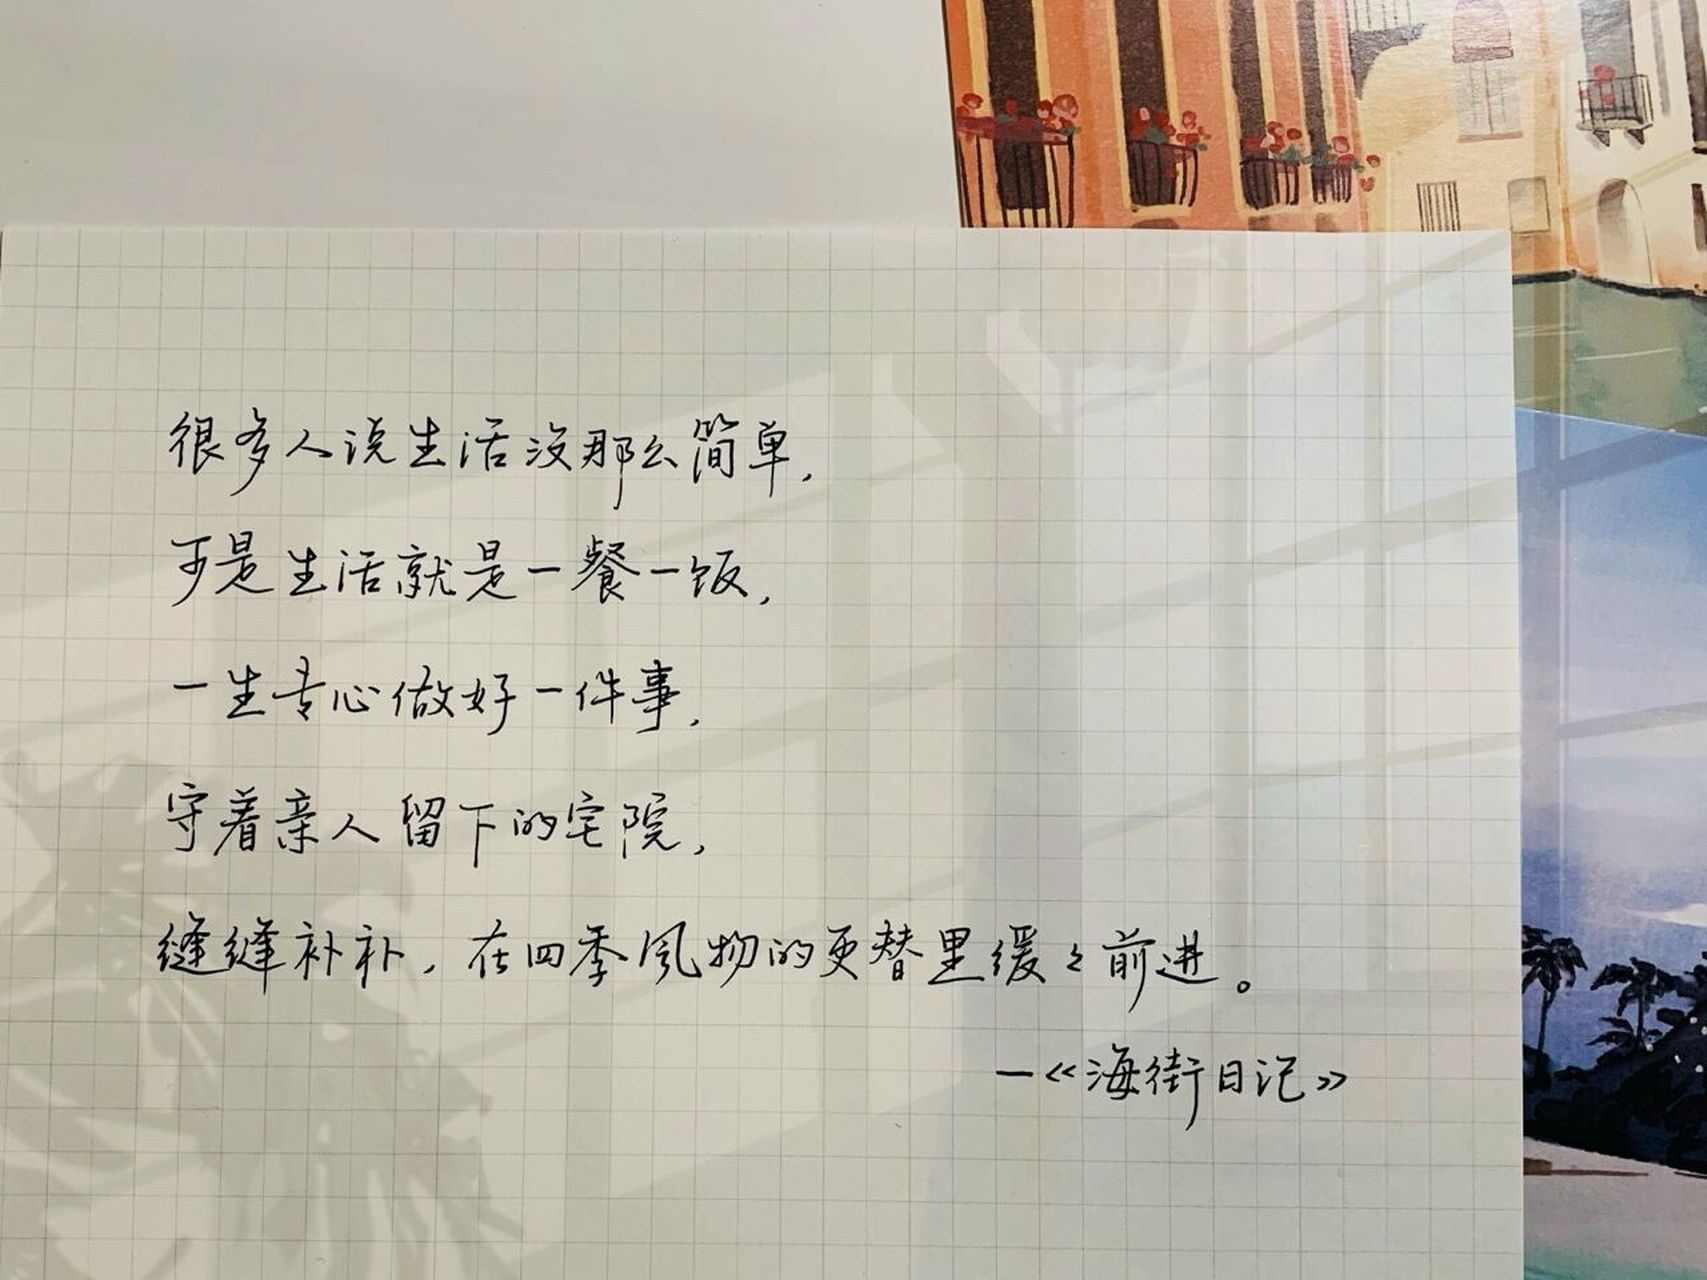 很多人说生活没那么简单,
可是生活就是一餐一饭,
一生专心做好一件事,
守着亲人留下的宅院,
缝缝补补,在四季风物的更替里缓々前进。
—《海街日记》